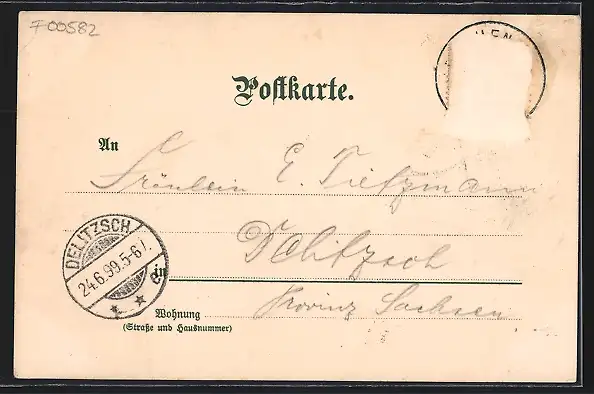 F00582
Postkarte.
An
Fräulein E. Tietzmann
Delitzsch
in
Provinz Sachsen
Wohnung
(Straße und Hausnummer)
DELITZSCH
24.6.99.5-6N.